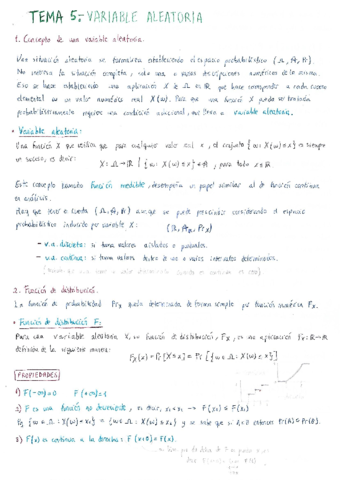 TEMA 5.- VARIABLE ALEATORIA
1. Concepto de una variable aleatoria.
Una situación aleatoria se formaliza estableciendo el espacio probabilístico (Ω, A, P).
No interesa la situación completa, sólo una o varias descripciones numéricas de la misma.
Eso se hace estableciendo una aplicación X de Ω en ℝ que hace corresponder a cada suceso
elemental ω un valor numérico real X(ω). Para que una función X pueda ser tratada
probabilísticamente requiere una condición adicional, que lleva a variable aleatoria.
• Variable aleatoria:
Una función X que verifica que para cualquier valor real x, el conjunto {ω: X(ω) ≤ x} es siempre
un suceso, es decir:
X: Ω → ℝ / {ω: X(ω) ≤ x} ∈ A, para todo x ∈ ℝ.
Este concepto llamado función medible, desempeña un papel similar al de función continua
en análisis.
Hay que tener en cuenta (Ω, A, P) aunque se puede prescindir considerando el espacio
probabilístico inducido por variable X:
- v.a. discreta: si toma valores aislados o puntuales.
- v.a. continua: si toman valores dentro de uno o varios intervalos determinados.
2. Función de distribución.
La función de probabilidad Prx queda determinada de forma simple por función numérica Fx.
• Función de distribución F:
Para una variable aleatoria X, su función de distribución, Fx, es una aplicación Fx: ℝ → ℝ
definida de la siguiente manera:
Fx(x) = Pr[X ≤ x] = Pr[{ω ∈ Ω: X(ω) ≤ x}]
PROPIEDADES
1) F(-∞) = 0 F(+∞) = 1
2) F es una función no decreciente, es decir, x₁ < x₂ → F(x₁) ≤ F(x₂)
3) F(x) es continua a la derecha: F(x+0) = F(x).